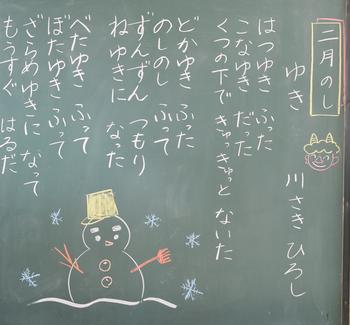 二月のし
ゆき
川さき ひろし
はつゆき ふった
こなゆき ふった
くつの下で きゅっきゅっと ないた
どかゆき ふった
のしのし ふって
ずんずん つもり
ねゆきに なった
べたゆき ふって
ぼたゆき ふって
ざらめゆきに なって
もうすぐ はるだ